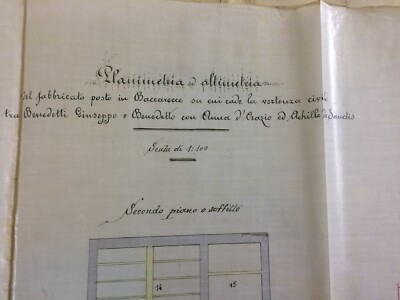 Planimetria ed altimetria
del fabbricato posto in Baccarecce su cui cade la vertenza civile
tra Benedetti Giuseppe e Benedetto con Anna d'Orazio ed Achille De Sanctis
Scala di 1:100
Secondo piano o soffitte
14
15